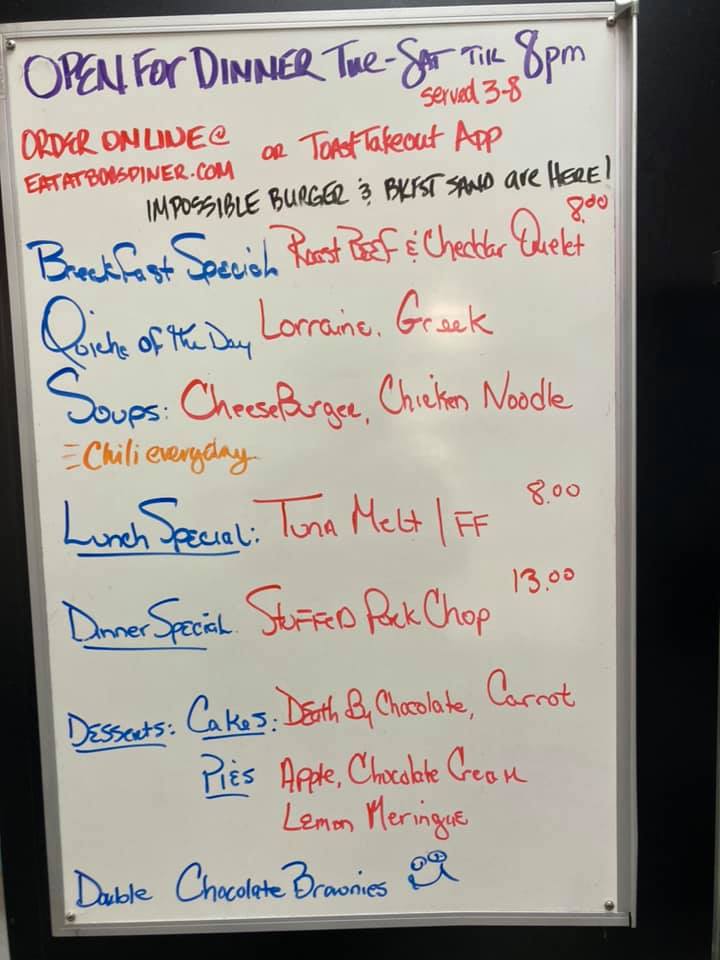 OPEN FOR DINNER Tue-Sat Till 8pm
served 3-8
ORDER ONLINE@ or Toast Takeout App
EATATBOBSDINER.COM
IMPOSSIBLE BURGER & BKFST SAND are HERE!
8.00
Breakfast Special Roast Beef & Cheddar Omelet
Quiche of the Day Lorraine, Greek
Soups: CheeseBurger, Chicken Noodle
Chili everyday
8.00
Lunch Special: Tuna Melt / FF
13.00
Dinner Special Stuffed Pork Chop
Desserts: Cakes: Death By Chocolate, Carrot
Pies Apple, Chocolate Cream
Lemon Meringue
Double Chocolate Brownies